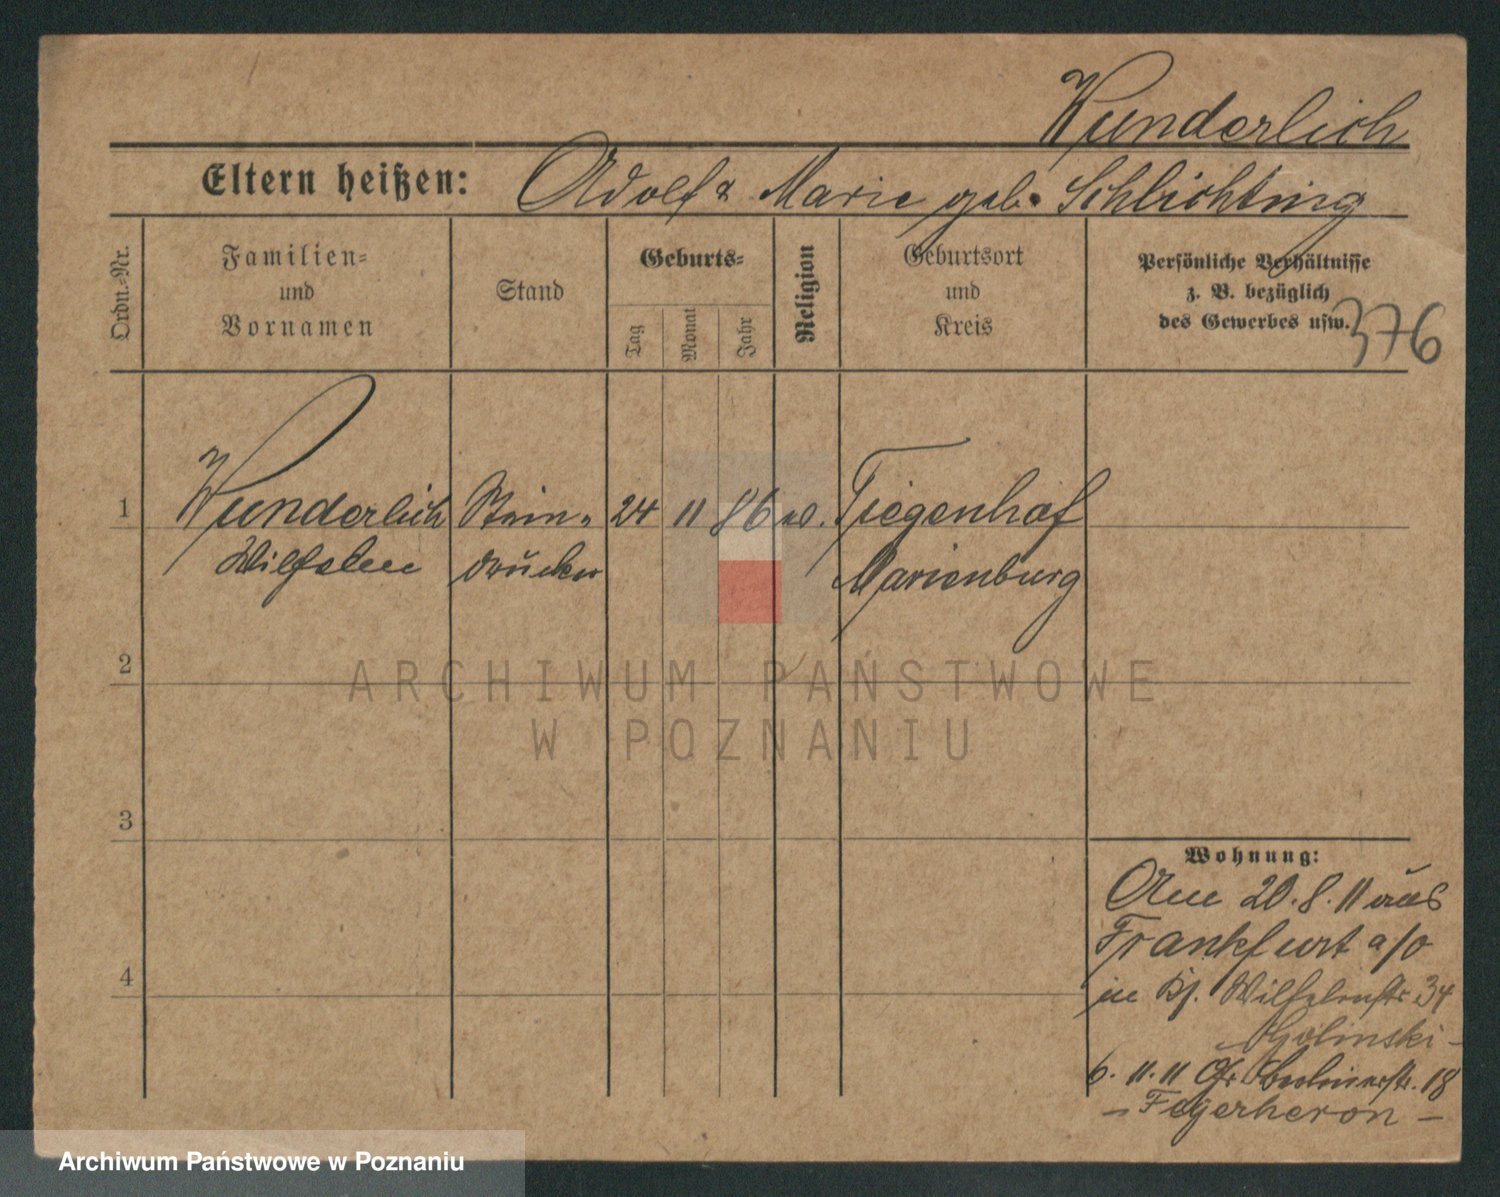 Wunderlich
Eltern heißen: Adolf & Marie geb. Schlichting
Ordn.-Nr.
Familien=
und
Vornamen
Stand
Geburts=
Tag
Monat
Jahr
Religion
Geburtsort
und
Kreis
Persönliche Verhältnisse
z. B. bezüglich
des Gewerbes usw.
376
1 Wunderlich Stein- 24 11 86 ev. Tiegenhof
Wilhelm drucker Marienburg
2
3
4
Wohnung:
Am 20.8.11 aus
Frankfurt a/O
in Wilhelmstr 34
6.11.11 Berlinerstr. 18
ARCHIWUM PAŃSTWOWE
W POZNANIU
Archiwum Państwowe w Poznaniu